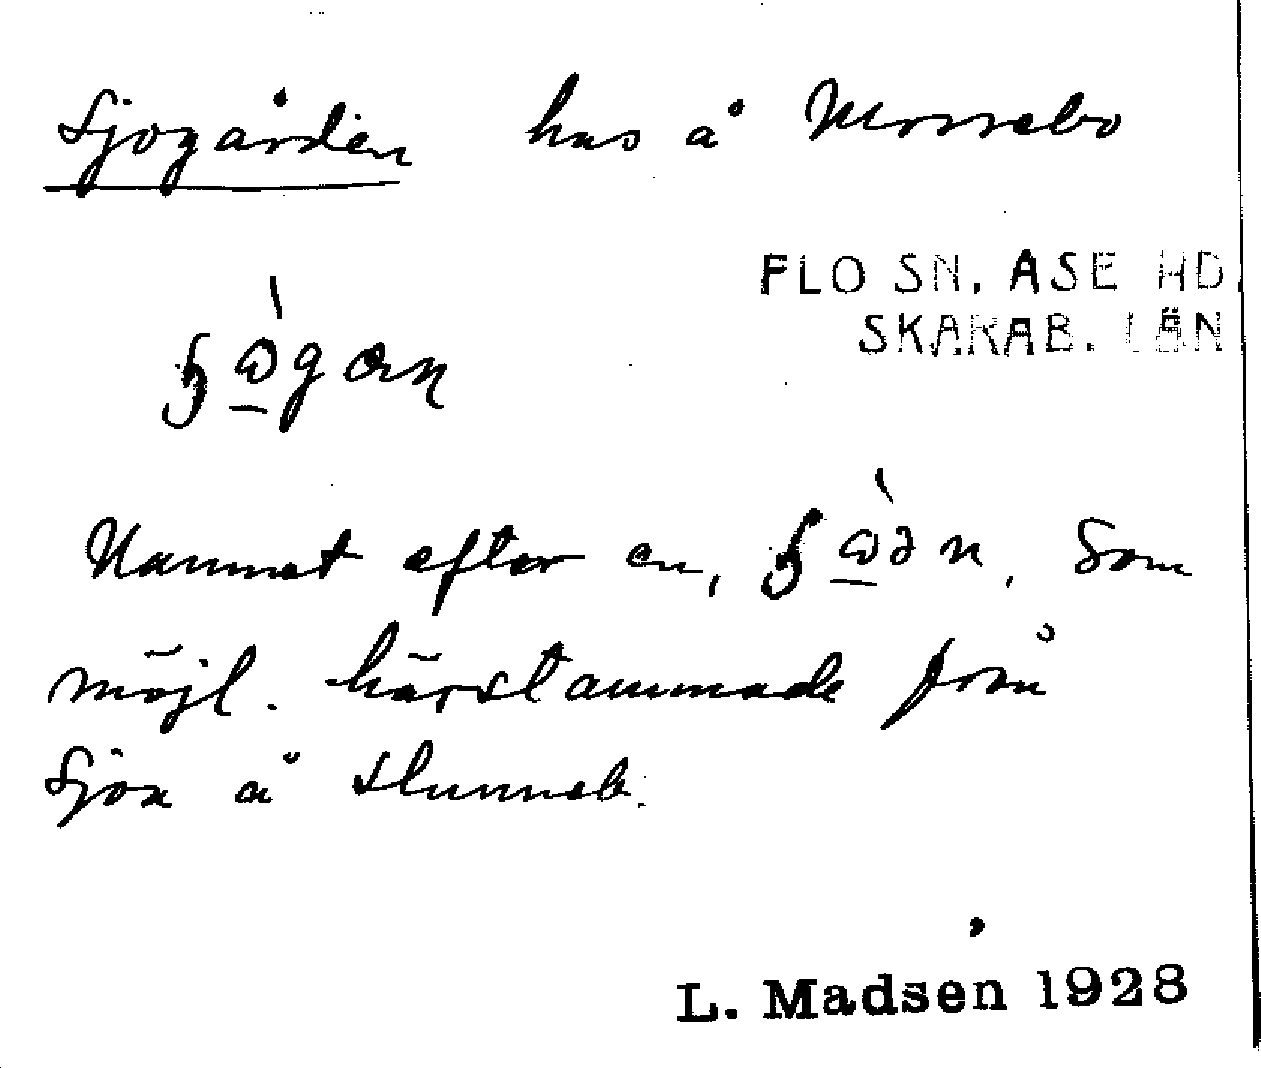 Sjögården hus å Mossebo
FLO SN. ÅSE HD.
SKARAB. LÄN
Namnet efter en, som
möjl. härstammade från
Sjön å Slunneb.
L. Madsen 1928